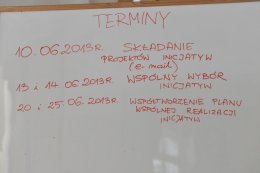 TERMINY
10.06.2013r. SKŁADANIE
PROJEKTÓW INICJATYW
(e-mail)
13 i 14 06.2013r. WSPÓLNY WYBÓR
INICJATYW
20 i 25.06.2013r. WSPÓŁTWORZENIE PLANU
WSPÓLNEJ REALIZACJI
INICJATYW